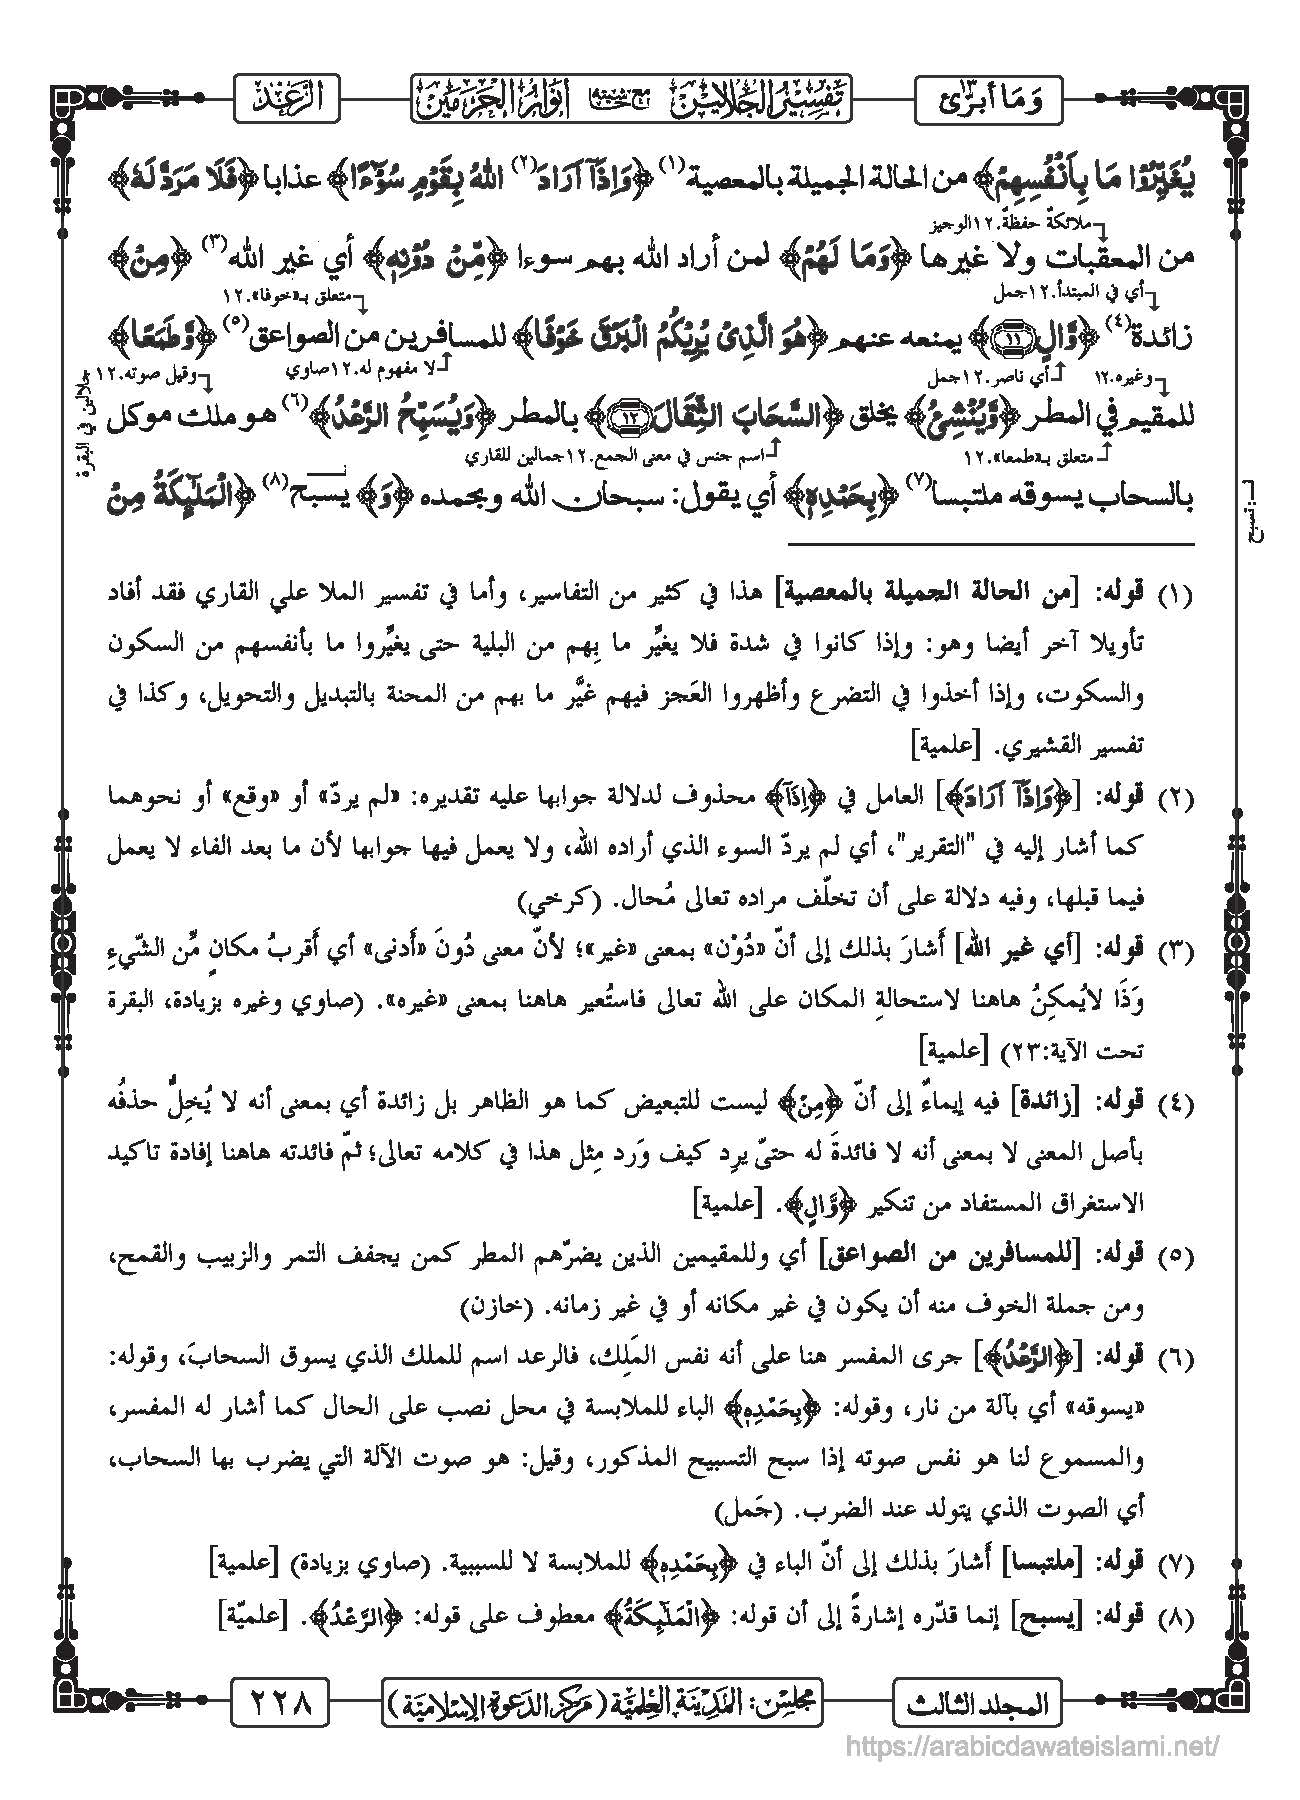 وَمَا أُبَرِّئُ ١٣
تفسير الجلالين مع حاشية أنوار الحرمين
الرَّعْد
يُغَيِّرُوْا مَا بِاَنْفُسِهِمْ﴾ من الحالة الجميلة بالمعصية(١) ﴿وَاِذَاۤ اَرَادَ(٢) اللهُ بِقَوْمٍ سُوْٓءًا﴾ عذابا ﴿فَلَا مَرَدَّ لَهٗ﴾
ملائكة حفظة.١٢الوجيز
من المعقبات ولا غيرها ﴿وَمَا لَهُمْ﴾ لمن أراد الله بهم سوءا ﴿مِّنْ دُوْنِهٖ﴾ أي غير الله(٣) ﴿مِنْ﴾
أي في المبتدأ.١٢جمل
متعلق بـ«خوفا».١٢
زائدة(٤) ﴿وَّالٍ ١١﴾ يمنعه عنهم ﴿هُوَ الَّذِىْ يُرِيْكُمُ الْبَرْقَ خَوْفًا﴾ للمسافرين من الصواعق(٥) ﴿وَّطَمَعًا﴾
وغيره.١٢
أي ناصر.١٢جمل
لا مفهوم له.١٢صاوي
وقيل صوته.١٢
جلالين في البقرة
للمقيم في المطر ﴿وَّيُنْشِئُ﴾ يخلق ﴿السَّحَابَ الثِّقَالَ ١٢﴾ بالمطر ﴿وَيُسَبِّحُ الرَّعْدُ﴾(٦) هو ملك موكل
متعلق بـ«طمعا».١٢
اسم جنس في معنى الجمع.١٢جمالين للقاري
بالسحاب يسوقه ملتبسا(٧) ﴿بِحَمْدِهٖ﴾ أي يقول: سبحان الله وبحمده ﴿وَ﴾ يسبح(٨) ﴿الْمَلٰٓئِكَةُ مِنْ
تسبح
(١) قوله: [من الحالة الجميلة بالمعصية] هذا في كثير من التفاسير، وأما في تفسير الملا علي القاري فقد أفاد
تأويلا آخر أيضا وهو: وإذا كانوا في شدة فلا يغيَّر ما بِهم من البلية حتى يغيَّروا ما بأنفسهم من السكون
والسكوت، وإذا أخذوا في التضرع وأظهروا العَجز فيهم غيَّر ما بهم من المحنة بالتبديل والتحويل، وكذا في
تفسير القشيري. [علمية]
(٢) قوله: [﴿وَاِذَاۤ اَرَادَ﴾] العامل في ﴿اِذَاۤ﴾ محذوف لدلالة جوابها عليه تقديره: «لم يردّ» أو «وقع» أو نحوهما
كما أشار إليه في "التقرير"، أي لم يردّ السوء الذي أراده الله، ولا يعمل فيها جوابها لأن ما بعد الفاء لا يعمل
فيما قبلها، وفيه دلالة على أن تخلّف مراده تعالى مُحال. (كرخي)
(٣) قوله: [أي غير الله] أَشارَ بذلك إلى أنّ «دُوْن» بمعنى «غير»؛ لأنّ معنى دُونَ «أدنى» أي أَقربُ مكانٍ مِّن الشّيءِ
وَذَا لايُمكِنُ هاهنا لاستحالةِ المكان على الله تعالى فاستُعير هاهنا بمعنى «غيره». (صاوي وغيره بزيادة، البقرة
تحت الآية:٢٣) [علمية]
(٤) قوله: [زائدة] فيه إيماءٌ إلى أنّ ﴿مِنْ﴾ ليست للتبعيض كما هو الظاهر بل زائدة أي بمعنى أنه لا يُخِلُّ حذفُه
بأصل المعنى لا بمعنى أنه لا فائدةَ له حتىّ يرِد كيف وَرد مِثل هذا في كلامه تعالى؛ ثمّ فائدته هاهنا إفادة تاكيد
الاستغراق المستفاد من تنكير ﴿وَّالٍ﴾. [علمية]
(٥) قوله: [للمسافرين من الصواعق] أي وللمقيمين الذين يضرّهم المطر كمن يجفف التمر والزبيب والقمح،
ومن جملة الخوف منه أن يكون في غير مكانه أو في غير زمانه. (خازن)
(٦) قوله: [﴿الرَّعْدُ﴾] جرى المفسر هنا على أنه نفس المَلِك، فالرعد اسم للملك الذي يسوق السحابَ، وقوله:
«يسوقه» أي بآلة من نار، وقوله: ﴿بِحَمْدِهٖ﴾ الباء للملابسة في محل نصب على الحال كما أشار له المفسر،
والمسموع لنا هو نفس صوته إذا سبح التسبيح المذكور، وقيل: هو صوت الآلة التي يضرب بها السحاب،
أي الصوت الذي يتولد عند الضرب. (جَمل)
(٧) قوله: [ملتبسا] أَشارَ بذلك إلى أنّ الباء في ﴿بِحَمْدِهٖ﴾ للملابسة لا للسببية. (صاوي بزيادة) [علمية]
(٨) قوله: [يسبح] إنما قدّره إشارةً إلى أن قوله: ﴿الْمَلٰٓئِكَةُ﴾ معطوف على قوله: ﴿الرَّعْدُ﴾. [علميّة]
المجلد الثالث
مجلس: المدينة العلمية (مركز الدعوة الإسلامية)
٢٢٨
https://arabicdawateislami.net/